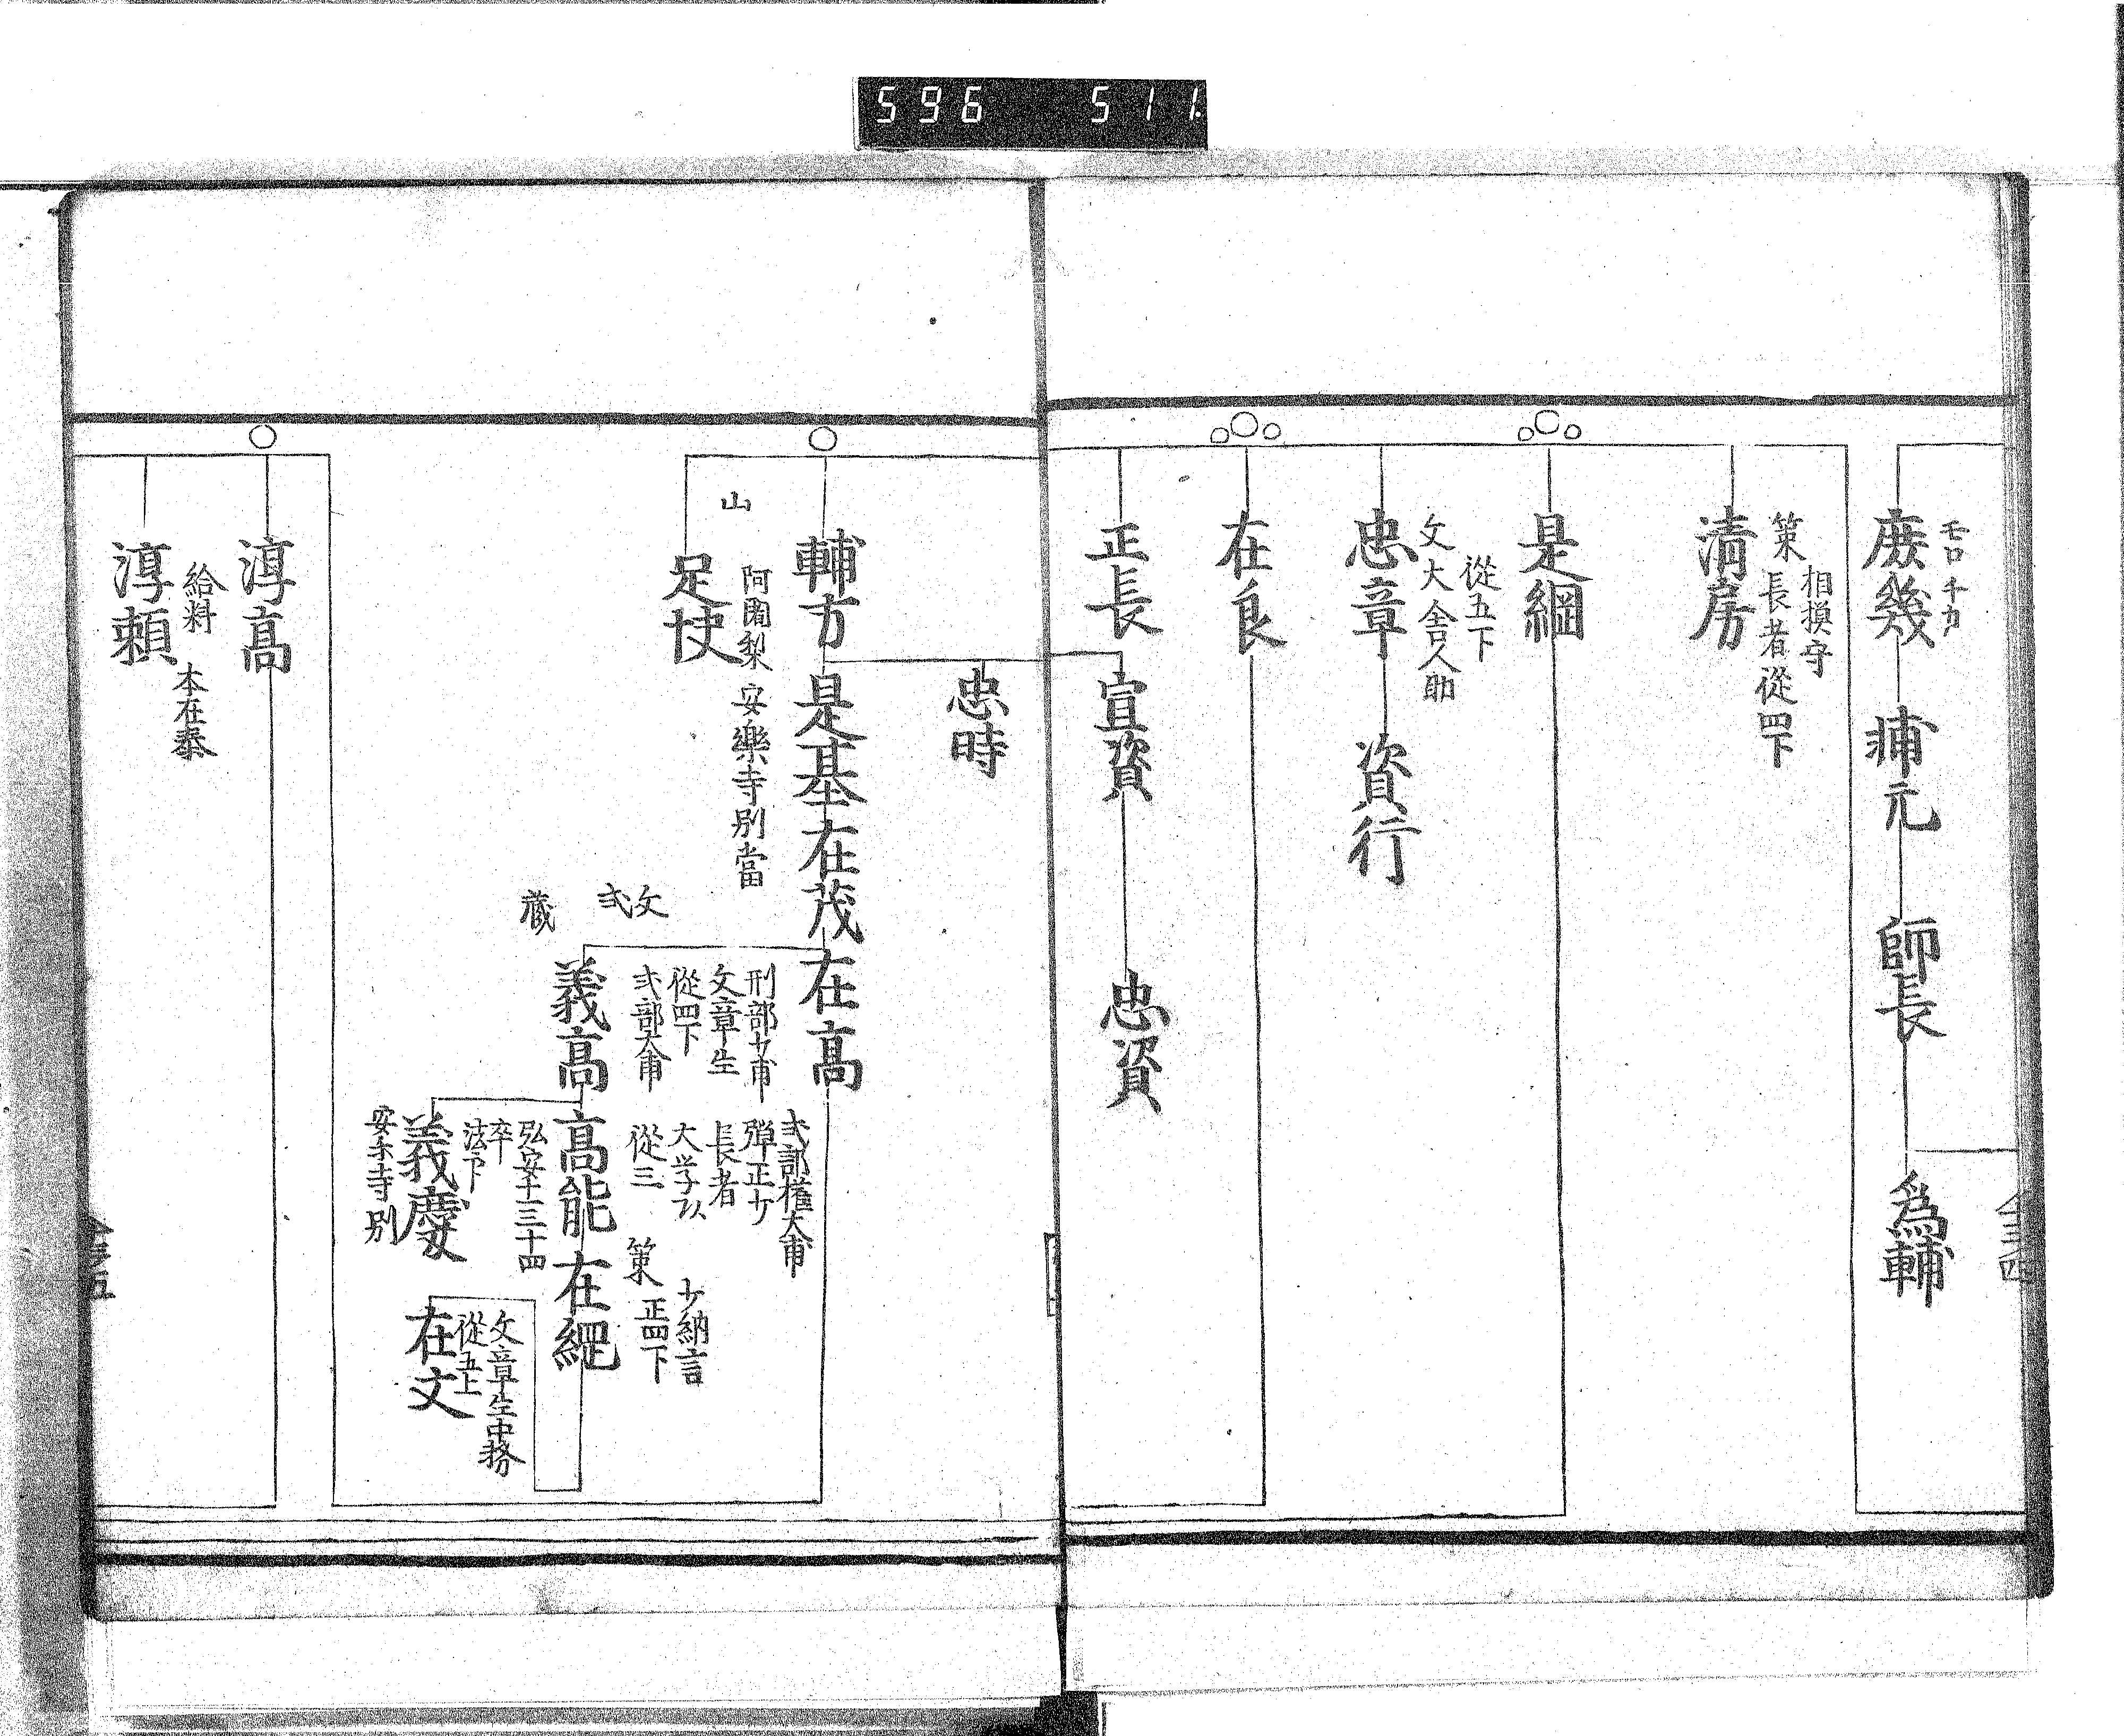 596 511
庶幾
モロチカ
輔元
師長
爲輔
清房
策 長者 從四下
相摸守
是綱
從五下
文 大舎人助
忠章
資行
在良
正長
宣資
忠資
忠時
輔方
是基
在茂
在高
刑部少甫
文章生
從四下
式部大甫
式部權大甫
弾正少
長者
大学頭
從三
山
阿闍梨 安樂寺別當
足快
文
式
蔵
義高
高能
在継
策 正四下
少納言
弘安十三三十四
卒
法印
義慶
安楽寺別
在文
文章生中務
從五上
淳高
給料 本在泰
淳頼